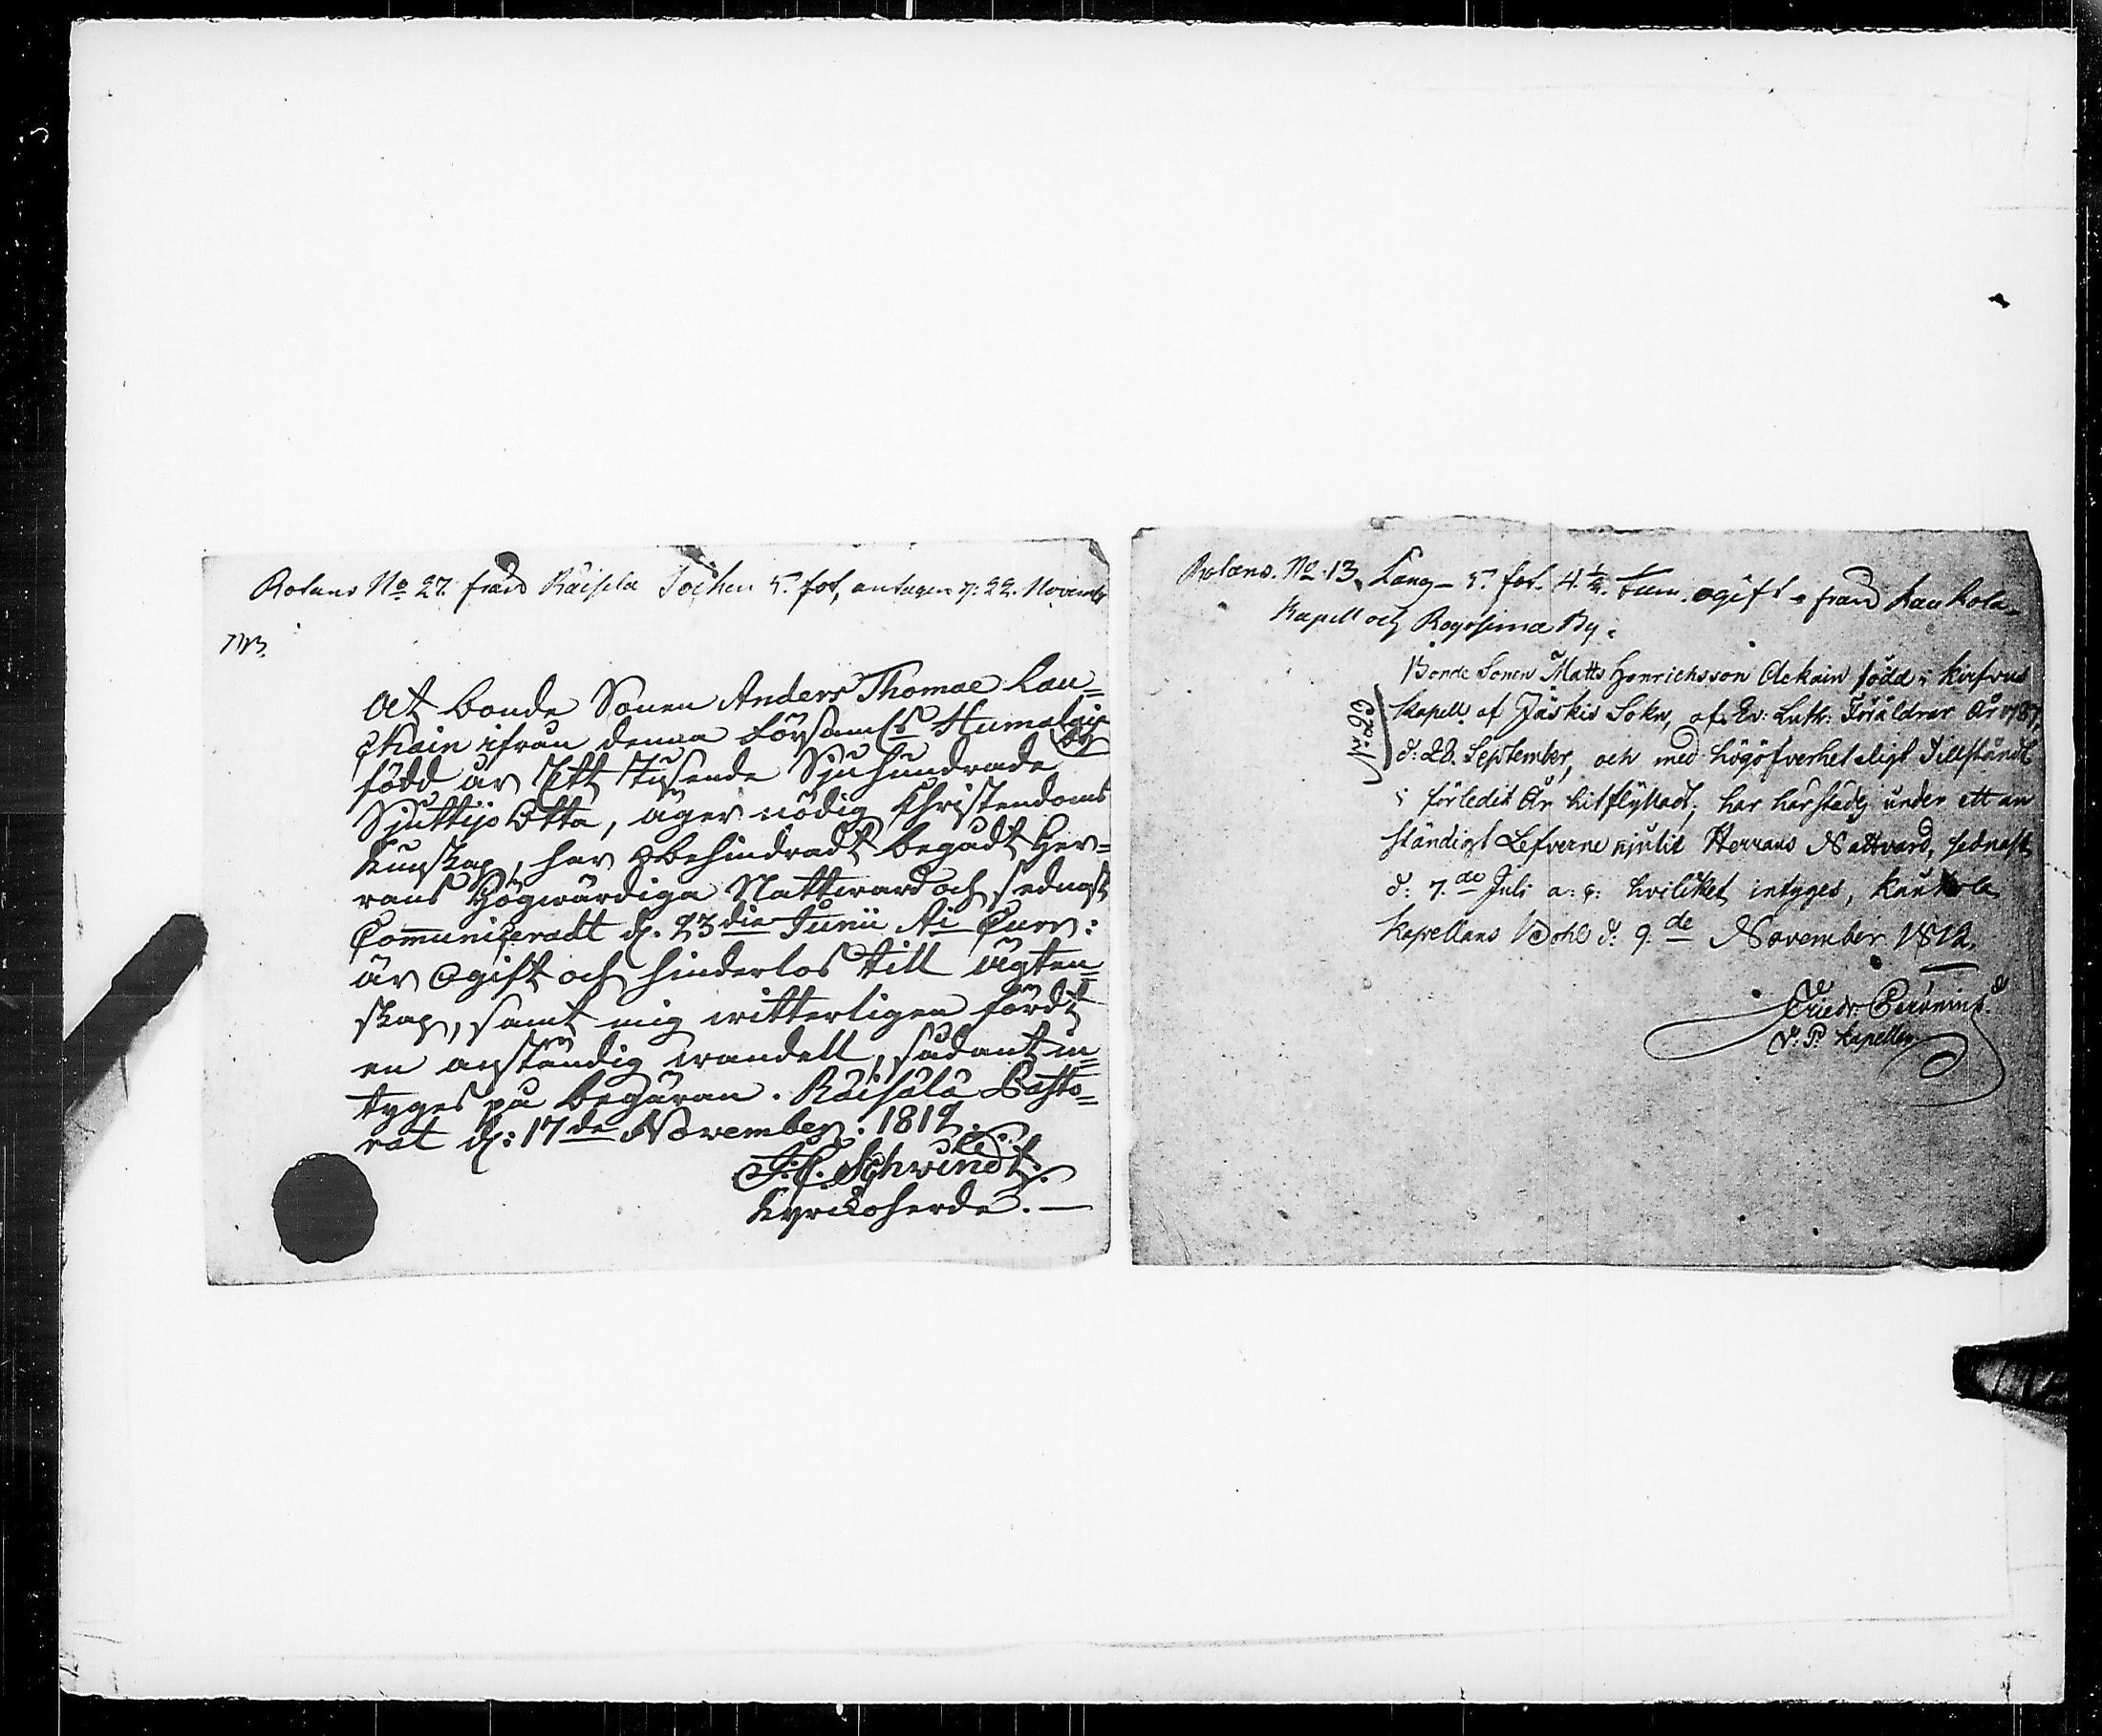 Rotans No 27. från Räisela Sochen 5. fot, antagen d: 22. Novembr
1813.
At bonde Sonen Anders Thomae Lau=
ckain ifrån denna Församls Humalais
by
född år Ett Tusende Sju hundrade
Sjuttijo Otta, äger nödig Christendoms
Kunskap, har obehindradt begådt Her=
rans Högwärdiga Nattward och sednast
Communiceradt d. 23die Junii Ai Curr:
är Ogift och hinderlös till ägten=
skap, samt mig witterligen fördt
en anständig wandell, sådant in=
tyges på begäran. Räisälä Pasto=
rat d: 17de November: 1812.
J. C. Schwindt.
Kyrckoherde. —
Rotans. No. 13. Lang — 5. fot. 4 1/2. tum. ogift. från Kaukola
Kapell och Rogosima By.
No: 29
Bonde Sonen Matts Henrichsson Ackain född i Kirfvus
Kapell af Jäskis Sokn, af Ev: Luth: Föräldrar År 1787,
d: 22. September, och med högöfverheteligt Tillstånd
i förledit År hitflyttadt, har härstädes under ett an
ständigt Lefverne njutit Herrans Nattvard, sednast
d: 7.de Juli a: c: hvilcket intyges, Kaukola
Kapellans Bohl d: 9.de November 1812.
Friedr:
V: P. Kapellan